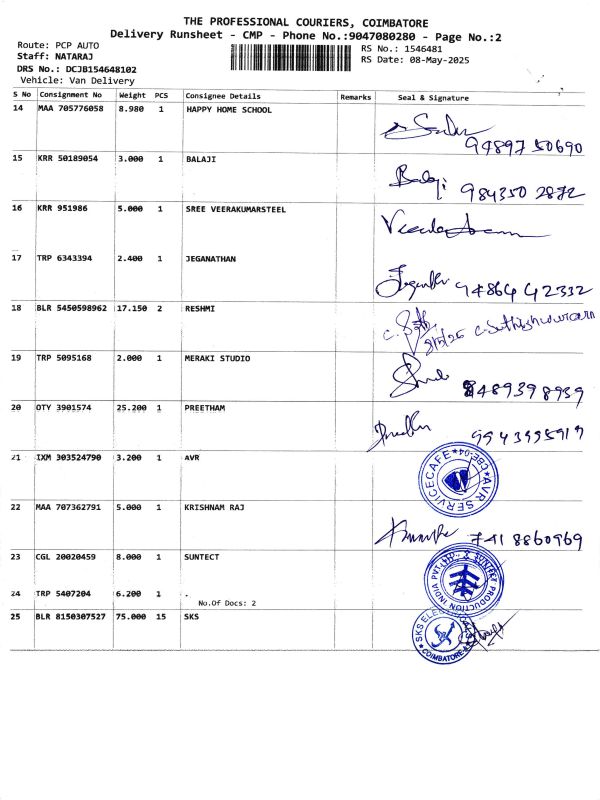 THE PROFESSIONAL COURIERS, COIMBATORE
Delivery Runsheet - CMP - Phone No.:9047080280 - Page No.:2
Route: PCP AUTO
RS No.: 1546481
Staff: NATARAJ
RS Date: 08-May-2025
DRS No.: DCJB154648102
Vehicle: Van Delivery
S No Consignment No Weight PCS Consignee Details Remarks Seal & Signature
14 MAA 705776058 8.980 1 HAPPY HOME SCHOOL
94897 50690
15 KRR 50189054 3.000 1 BALAJI
Balaji 984350 2872
16 KRR 951986 5.000 1 SREE VEERAKUMARSTEEL
17 TRP 6343394 2.400 1 JEGANATHAN
94864 42332
18 BLR 5450598962 17.150 2 RESHMI
19 TRP 5095168 2.000 1 MERAKI STUDIO
8489398939
20 OTY 3901574 25.200 1 PREETHAM
21 IXM 303524790 3.200 1 AVR
AVR SERVICECAFE CBE-04
22 MAA 707362791 5.000 1 KRISHNAM RAJ
741 8860969
23 CGL 20020459 8.000 1 SUNTECT
SUNTECT PRODUCTION INDIA PVT. LTD.
24 TRP 5407204 6.200 1 .
No.Of Docs: 2
25 BLR 8150307527 75.000 15 SKS
COIMBATORE